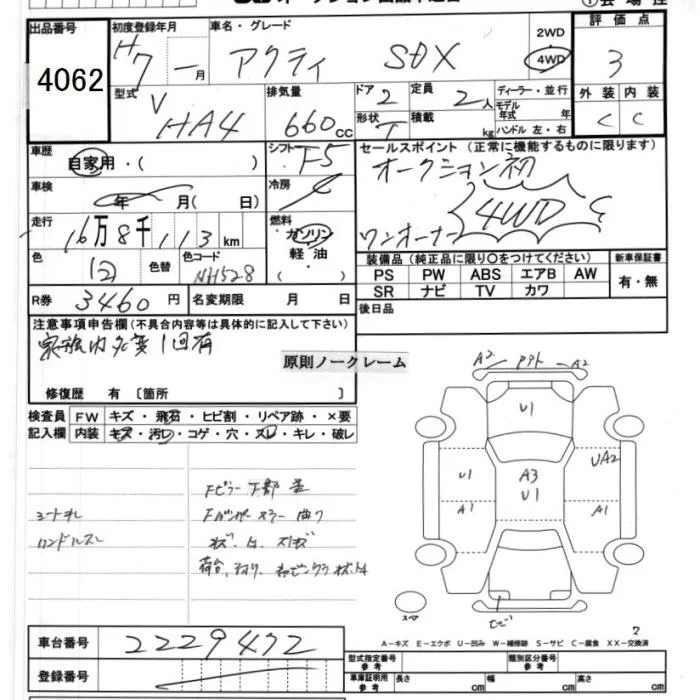 出品番号 初度登録年月 車名・グレード 2WD 評価点
4062 H7 一月 アクティ SDX 4WD 3
型式 排気量 ドア 2 定員 2人 ディーラー・並行 外装 内装
V HA4 660cc 形状 T 積載 kg モデル年式 年 C C
ハンドル 左・右
車歴 自家用・( ) シフト F5 セールスポイント (正常に機能するものに限ります)
車検 年 月( 日) 冷房 オークション初
走行 16万8千113km 燃料 ガソリン 軽油 ・( ) ワンオーナー 4WD
色 白 色替 色コード NH528 装備品 (純正品に限り○をつけてください) 新車保証書
PS PW ABS エアB AW 有・無
SR ナビ TV カワ
R券 3460円 名変期限 月 日 後日品
注意事項申告欄 (不具合内容等は具体的に記入して下さい)
家族内名変1回有
原則ノークレーム
修復歴 有 [箇所 ]
A2 A2
検査員 FW キズ・飛石・ヒビ割・リペア跡・×要
記入欄 内装 キズ・汚レ・コゲ・穴・スレ・キレ・破レ
U1
U1 A3 U1 UA2
A1 A1
Fピラー下部
シートヨレ Fバンパー 曲り
ハンドルスレ
荷台
スペア
A-キズ E-エクボ U-凹み W-補修跡 S-サビ C-腐食 XX-交換済
車台番号 2229472
登録番号
型式指定番号 参考 類別区分番号 参考
車庫証明用 参考 長さ cm 幅 cm 高さ cm